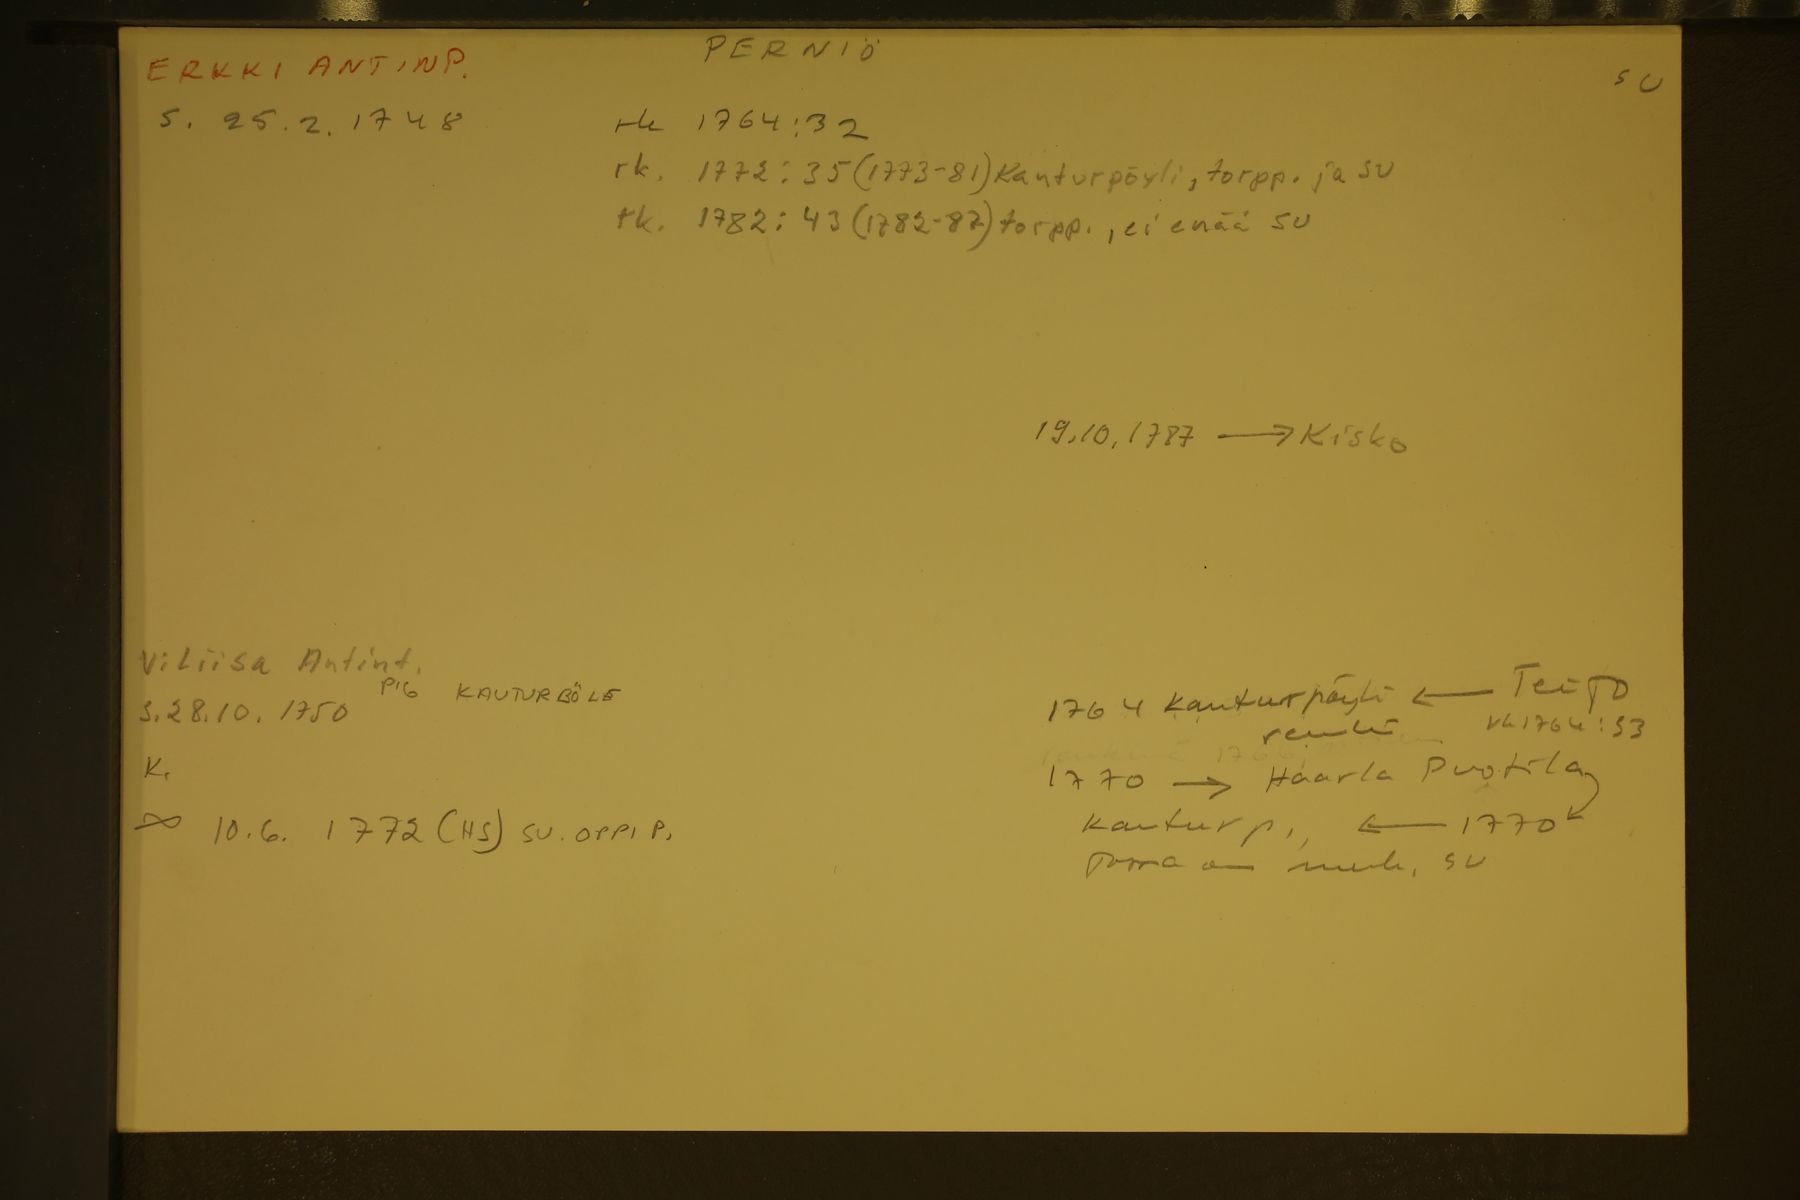 ERKKI ANTINP.
PERNIÖ
SU
S. 25.2.1748
rk 1764:32
rk. 1772:35 (1773-81) Kanturpöyli, torpp. ja SU
rk. 1782:43 (1782-87) torpp., ei enää SU
19.10.1787 → Kisko
Vi Liisa Antint.
PIG KAUTURBÖLE
S. 28.10. 1750
K.
∞ 10.6. 1772 (HS) SU. OPPI P.
1764 Kanturpöyli ← Teijo
renki rk 1764:33
1770 → Haarla Puotila
Kanturp., ← 1770
jossa on merk. SU